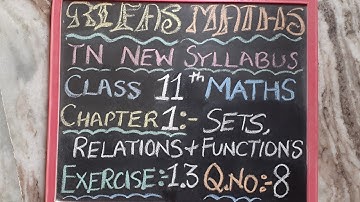 MATHS
TN NEW SYLLABUS
CLASS 11th MATHS
CHAPTER 1:- SETS,
RELATIONS + FUNCTIONS
EXERCISE:1.3 Q.NO:-8